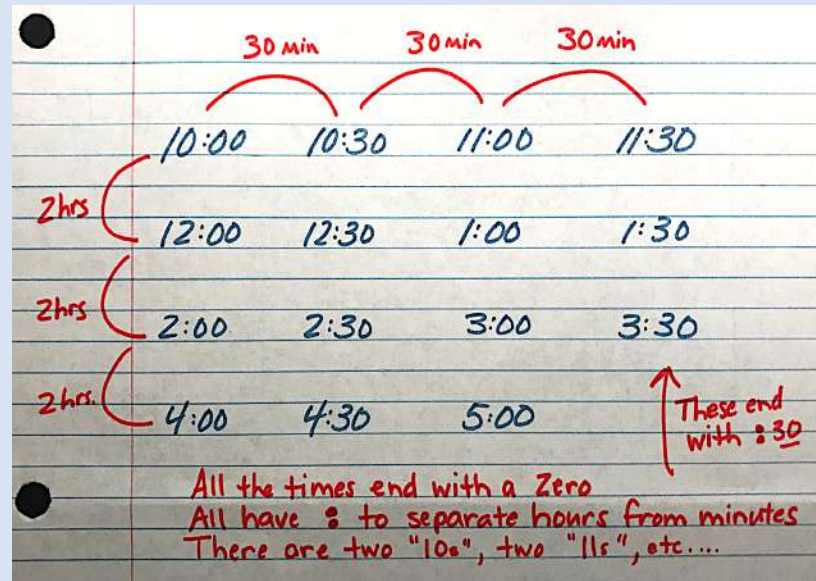 30 min 30 min 30 min
10:00 10:30 11:00 11:30
2hrs
12:00 12:30 1:00 1:30
2hrs
2:00 2:30 3:00 3:30
2hrs.
4:00 4:30 5:00
These end
with :30
All the times end with a Zero
All have : to separate hours from minutes
There are two "10s", two "11s", etc....